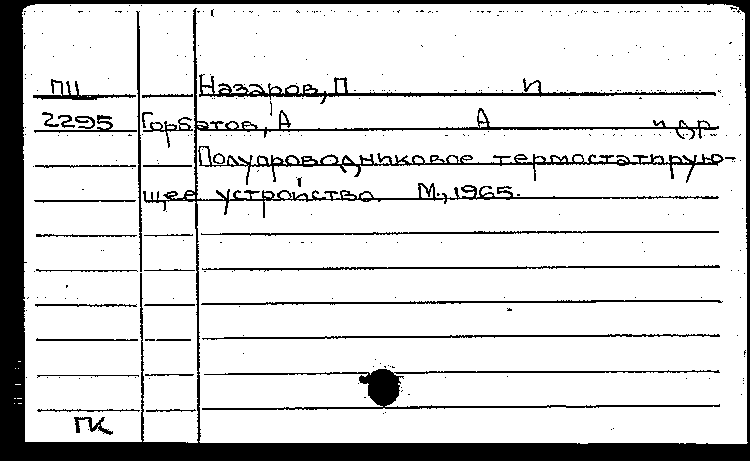 ПЦ Назаров, П И
2295 Горбатов, А А и др.
Полупроводниковое термостатирую-
щее устройство. М., 1965.
ПК